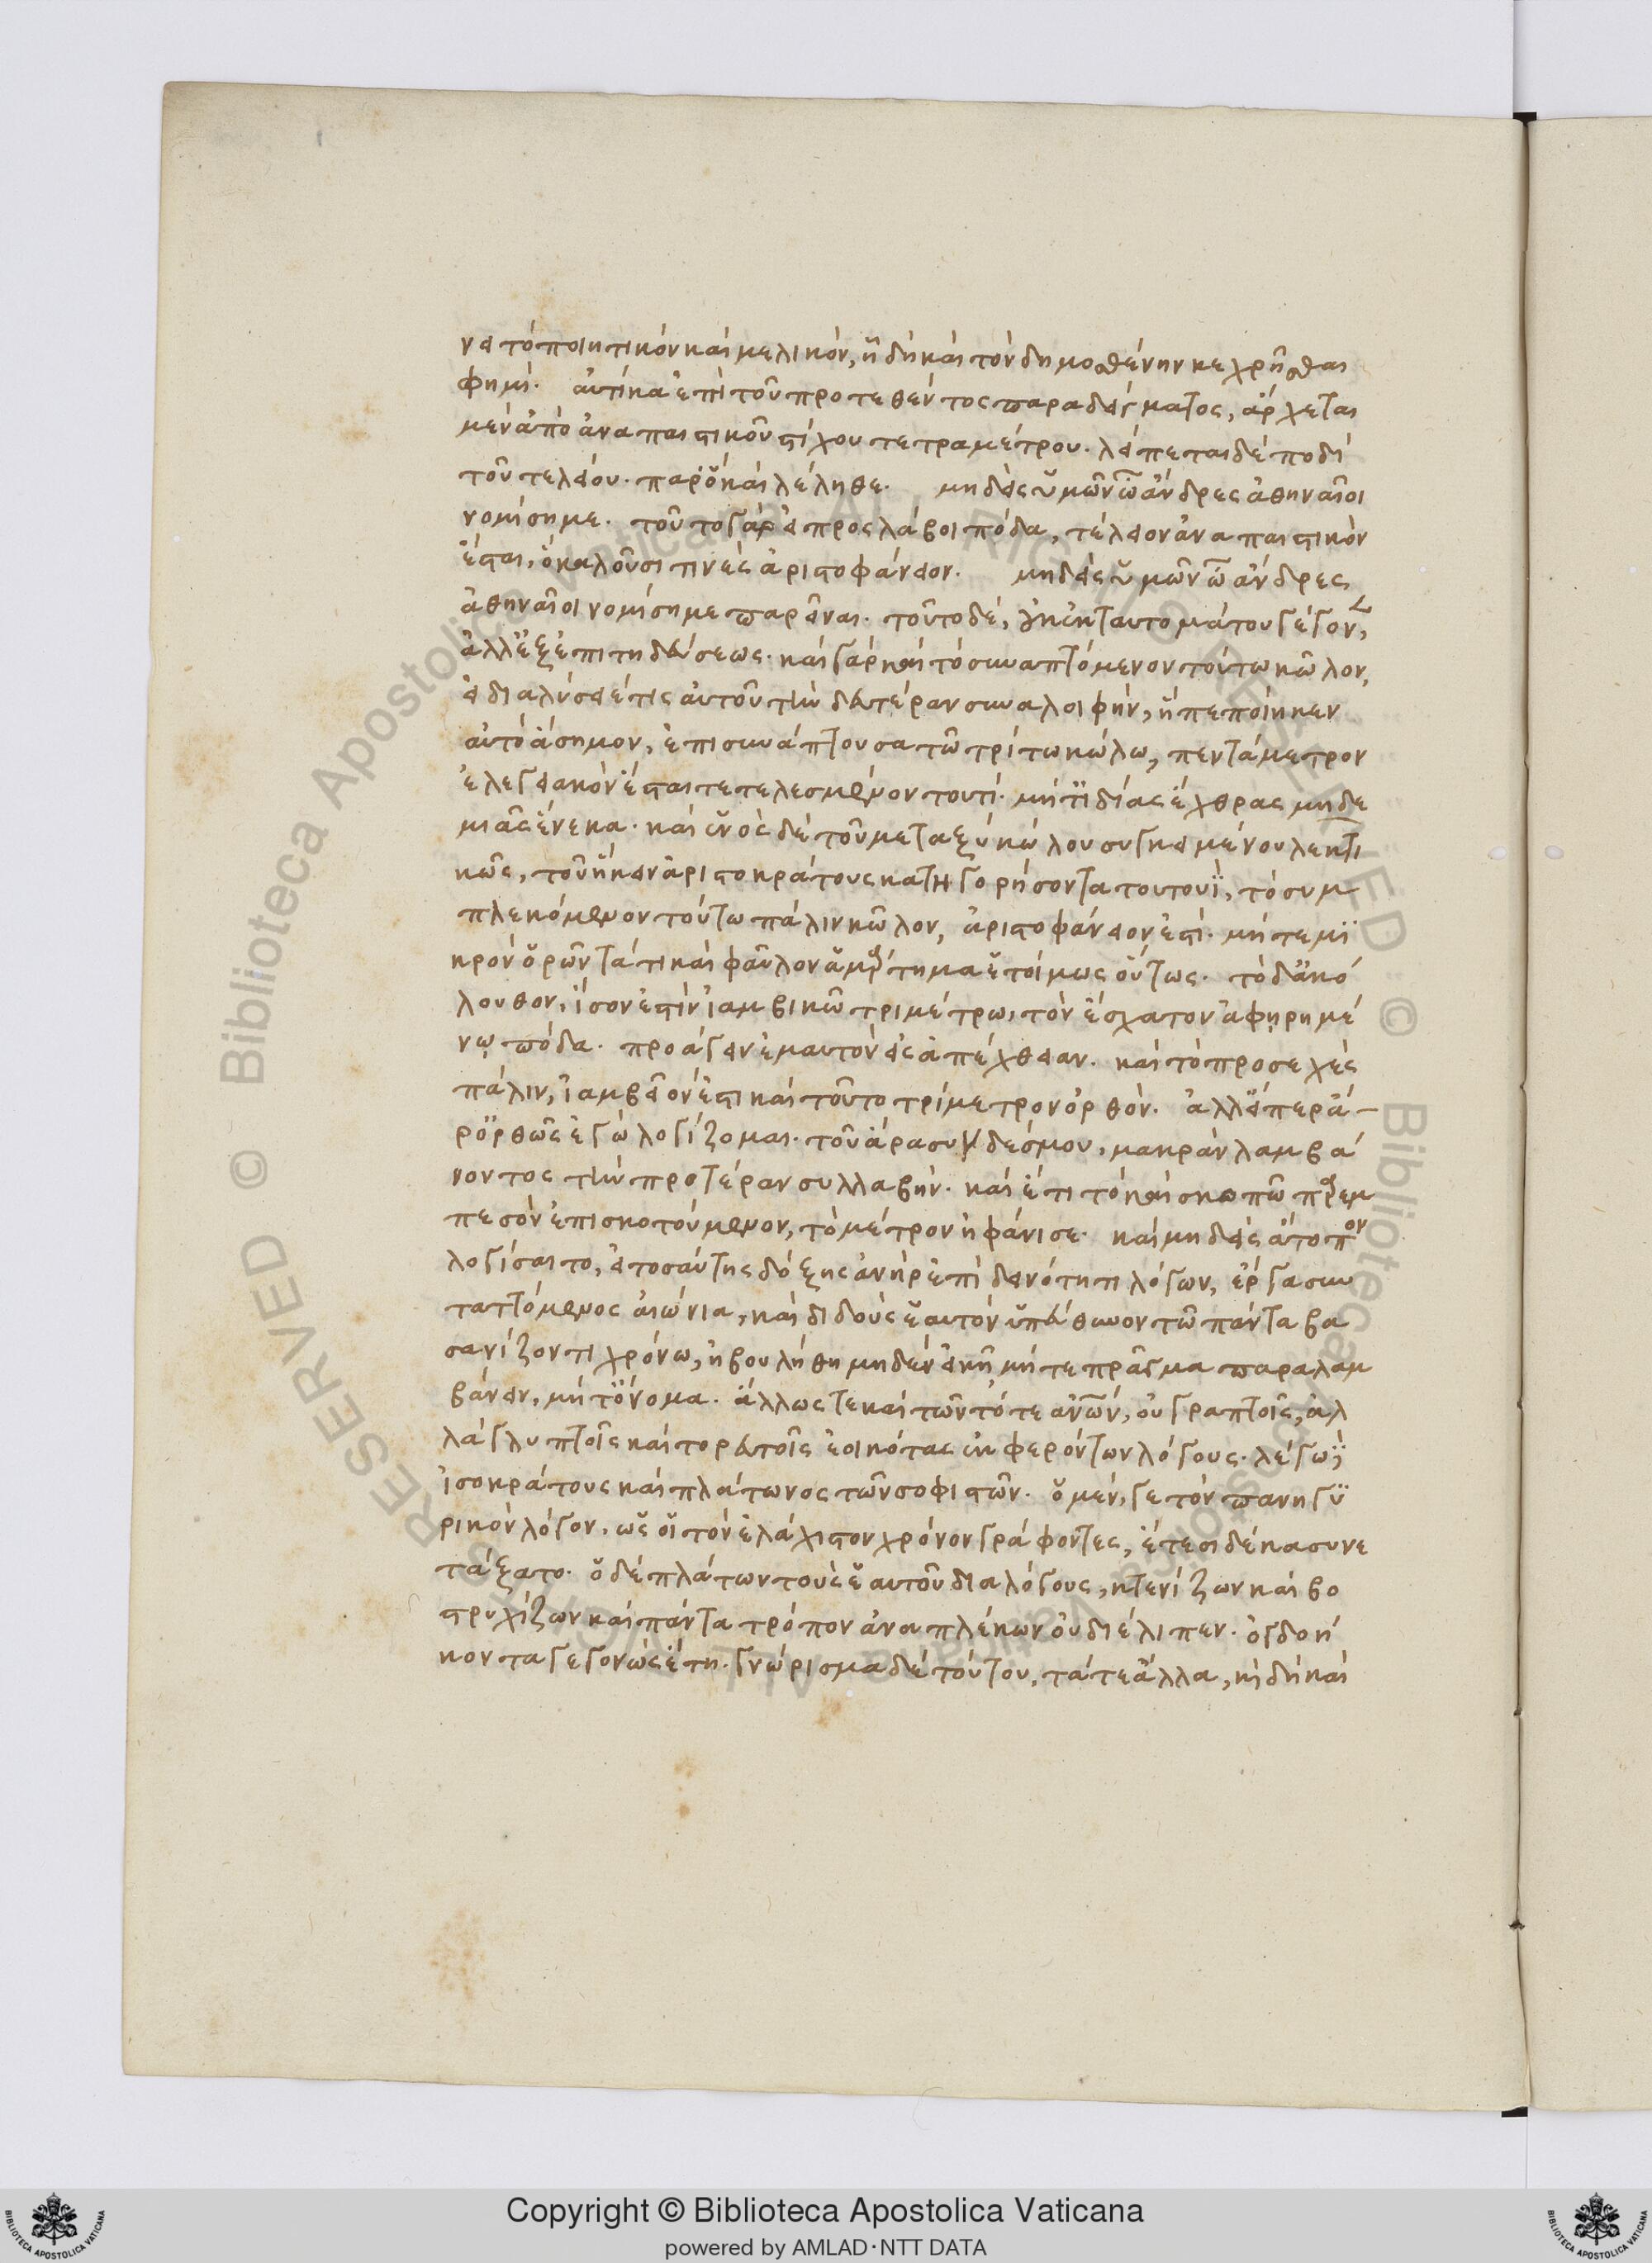 νει τὸ ποιητικὸν καὶ μελικόν, ᾧ δὴ καὶ τὸν δημοσθένην κεχρῆσθαι
φημί. αὐτίκα ἐπὶ τοῦ προτεθέντος παραδείγματος, ἄρχεται
μὲν ἀπὸ ἀναπαιστικοῦ στίχου τετραμέτρου. λείπεται δὲ ποδὶ
τοῦ τελείου. παρὸ καὶ λέληθε. μηδεὶς ὑμῶν ὦ ἄνδρες ἀθηναῖοι
νομίσῃ με. τοῦτο γὰρ εἰ προσλάβοι πόδα, τέλειον ἀναπαιστικὸν
ἔσται, ὃ καλοῦσί τινες ἀριστοφάνειον. μηδεὶς ὑμῶν ὦ ἄνδρες
ἀθηναῖοι νομίσῃ με παρεῖναι. τοῦτο δέ, οὐκ ἐκ ταυτομάτου γέγον,
ἀλλ' ἐξ ἐπιτηδεύσεως. καὶ γὰρ καὶ τὸ συναπτόμενον τούτω κῶλον,
εἰ διαλύσειέ τις αὐτοῦ τὴν δευτέραν συναλοιφήν, ἣ πεποίηκεν
αὐτὸ ἄσημον, ἐπισυνάπτουσα τῶ τρίτω κώλω, πεντάμετρον
ἐλεγειακὸν ἔσται τετελεσμένον τουτί. μήτ' ἰδίας ἔχθρας μηδε
μιᾶς ἕνεκα. καὶ ἑνὸς δὲ τοῦ μεταξὺ κώλου συγκειμένου λεκτι
κῶς, τοῦ ἥκειν ἀριστοκράτους κατηγορήσοντα τουτουΐ, τὸ συμ
πλεκόμενον τούτω πάλιν κῶλον, ἀριστοφάνειον ἐστί. μήτε μι
κρὸν ὁρῶντά τι καὶ φαῦλον ἁμάρτημα ἑτοίμως οὕτως. τὸ δ' ἀκό
λουθον, ἴσον ἐστὶν ἰαμβικῶ τριμέτρω, τὸν ἔσχατον ἀφῃρημέ
νῳ πόδα. προάγειν ἐμαυτὸν εἰς ἀπέχθειαν. καὶ τὸ προσεχὲς
πάλιν, ἰαμβεῖον ἐστὶ καὶ τοῦτο τρίμετρον ὀρθόν. ἀλλ' εἴπερ ἄ
ρ' ὀρθῶς ἐγὼ λογίζομαι. τοῦ ἄρα συνδέσμου, μακρὰν λαμβά
νοντος τὴν προτέραν συλλαβήν. καὶ ἔτι τὸ καὶ σκοπῶ παρεμ
πεσὸν ἐπισκοτούμενον, τὸ μέτρον ἠφάνισε. καὶ μηδεὶς ἄτοπον
λογίσαιτο, εἰ τοσαύτης δόξης ἀνὴρ ἐπὶ δεινότητι λόγων, ἔργα συν
ταττόμενος αἰώνια, καὶ διδοὺς ἑαυτὸν ὑπεύθυνον τῶ πάντα βα
σανίζοντι χρόνω, ἠβουλήθη μηδὲν εἰκῆ μήτε πρᾶγμα παραλαμ
βάνειν, μήτ' ὄνομα. ἄλλως τε καὶ τῶν τότε ἀνῶν, οὐ γραπτοῖς, ἀλ
λὰ γλυπτοῖς καὶ τορευτοῖς ἐοικότας ἐκφερόντων λόγους. λέγω δὴ
ἰσοκράτους καὶ πλάτωνος τῶν σοφιστῶν. ὁ μέν, γε τὸν πανηγυ
ρικὸν λόγον, ὡς οἱ τὸν ἐλάχιστον χρόνον γράφοντες, ἔτεσι δέκα συνε
τάξατο. ὁ δὲ πλάτων τοὺς ἑαυτοῦ διαλόγους, κτενίζων καὶ βο
στρυχίζων καὶ πάντα τρόπον ἀναπλέκων οὐ διέλιπεν. ὀγδοή
κοντα γεγονὼς ἔτη. γνώρισμα δὲ τούτου, τά τε ἄλλα, καὶ δὴ καὶ
Copyright © Biblioteca Apostolica Vaticana
powered by AMLAD·NTT DATA